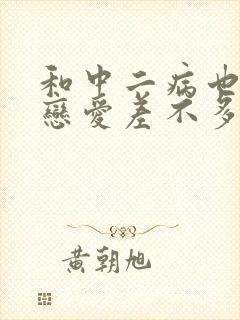 和中二病也
戀愛差不多
黃朝旭